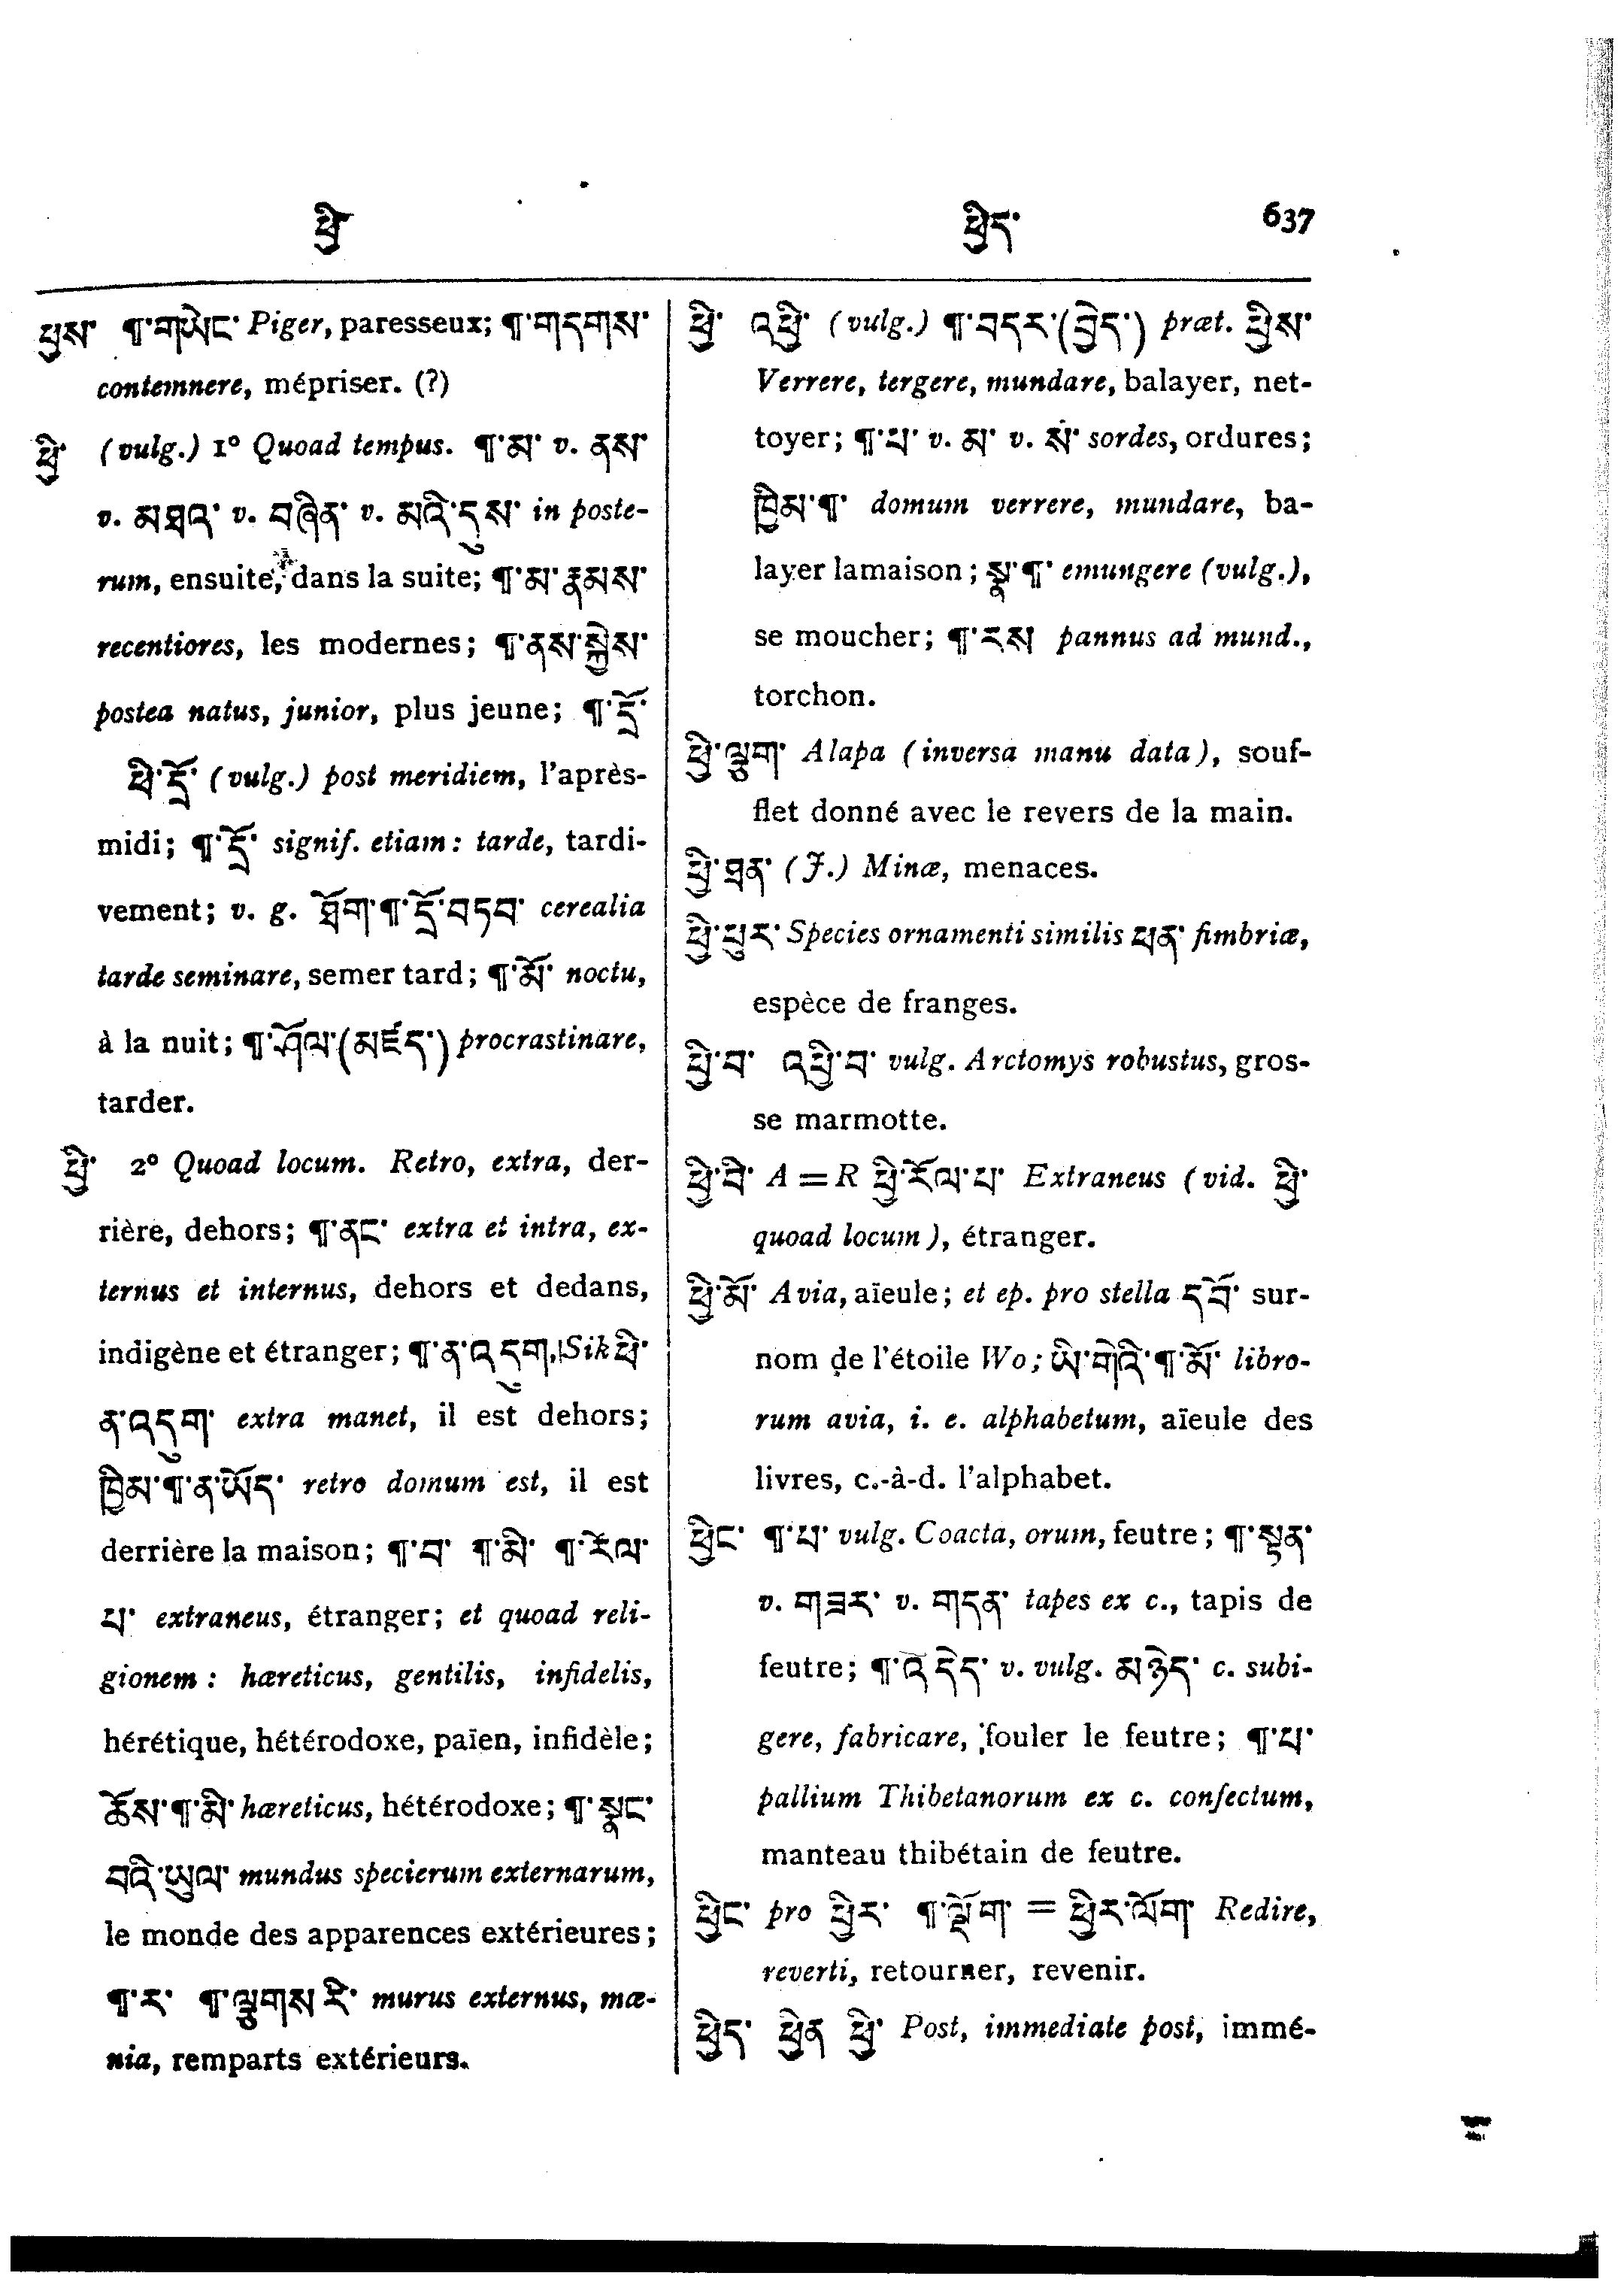 ཕྱི་ ཕྱིད་ 637
ཕྱས་ ¶་གཡེང་ Piger, paresseux; ¶་གདགས་
contemnere, mépriser. (?)
ཕྱི་ (vulg.) 1° Quoad tempus. ¶་མ་ v. ནས་
v. མཐའ་ v. བཞིན་ v. མའི་དུས་ in poste-
rum, ensuite, dans la suite; ¶་མ་རྣམས་
recentiores, les modernes; ¶་ནས་སྐྱེས་
postea natus, junior, plus jeune; ¶་དྲོ་
ཕི་དྲོ་ (vulg.) post meridiem, l'après-
midi; ¶་དྲོ་ signif. etiam: tarde, tardi-
vement; v. g. ཐོག་¶་དྲོ་བཏབ་ cerealia
tarde seminare, semer tard; ¶་མོ་ noctu,
à la nuit; ¶་ཤོལ་(མཛད་) procrastinare,
tarder.
ཕྱི་ 2° Quoad locum. Retro, extra, der-
rière, dehors; ¶་ནང་ extra et intra, ex-
ternus et internus, dehors et dedans,
indigène et étranger; ¶་ན་འདུག, Sik ཕི་
ན་འདུག་ extra manet, il est dehors;
ཁྱིམ་¶་ན་ཡོད་ retro domum est, il est
derrière la maison; ¶་བ་ ¶་མི་ ¶་རོལ་
པ་ extraneus, étranger; et quoad reli-
gionem: hæreticus, gentilis, infidelis,
hérétique, hétérodoxe, païen, infidèle;
ཆོས་¶་མི་ hæreticus, hétérodoxe; ¶་སྣང་
བའི་ཡུལ་ mundus specierum externarum,
le monde des apparences extérieures;
¶་ར་ ¶་ལྕགས་རི་ murus externus, mœ-
nia, remparts extérieurs.
ཕྱི་ འཕྱི་ (vulg.) ¶་བདར་(བྱེད་) præt. ཕྱིས་
Verrere, tergere, mundare, balayer, net-
toyer; ¶་པ་ v. མ་ v. ས་ sordes, ordures;
ཁྱིམ་¶་ domum verrere, mundare, ba-
layer lamaison; སྣ་¶་ emungere (vulg.),
se moucher; ¶་རས pannus ad mund.,
torchon.
ཕྱི་ལྕག་ Alapa (inversa manu data), souf-
flet donné avec le revers de la main.
ཕྱི་ཐན་ (J.) Minæ, menaces.
ཕྱི་ཕུར་ Species ornamenti similis ཕན་ fimbriæ,
espèce de franges.
ཕྱི་བ་ འཕྱི་བ་ vulg. Arctomys robustus, gros-
se marmotte.
ཕྱི་བི་ A = R ཕྱི་རོལ་པ་ Extraneus (vid. ཕྱི་
quoad locum), étranger.
ཕྱི་མོ་ Avia, aïeule; et ep. pro stella དབོ་ sur-
nom de l'étoile Wo; ཡི་གེའི་¶་མོ་ libro-
rum avia, i. e. alphabetum, aïeule des
livres, c.-à-d. l'alphabet.
ཕྱིང་ ¶་པ་ vulg. Coacta, orum, feutre; ¶་སྟན་
v. གཟར་ v. གདན་ tapes ex c., tapis de
feutre; ¶་འདེད་ v. vulg. མཉེད་ c. subi-
gere, fabricare, fouler le feutre; ¶་པ་
pallium Thibetanorum ex c. confectum,
manteau thibétain de feutre.
ཕྱིང་ pro ཕྱིར་ ¶་ལྡོག་ = ཕྱིར་ལོག་ Redire,
reverti, retourner, revenir.
ཕྱིད་ ཕྱིན ཕྱི་ Post, immediate post, immé-